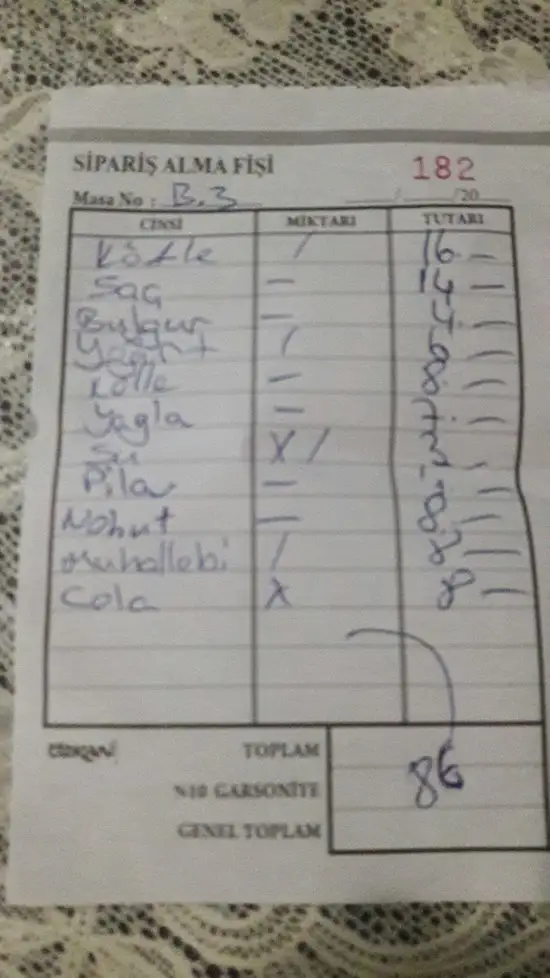 SİPARİŞ ALMA FİŞİ 182
Masa No : B.3 / /20
CİNSİ MİKTARI TUTARI
Köfte / 16 —
Saç — 14 —
Bulgur —
Yoğurt /
Köfte —
Yağla —
Su X /
Pilav —
Nohut — 8 —
Muhallebi / 8 —
Cola X 8 —
TOPLAM 86
%10 GARSONİYE
GENEL TOPLAM